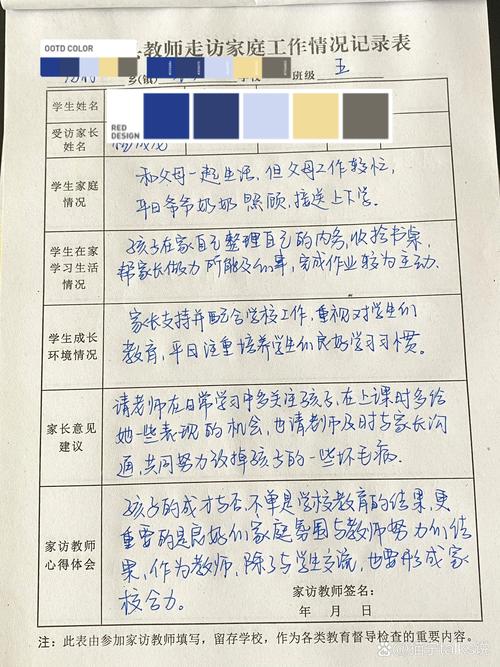 OOTD COLOR
教师走访家庭工作情况记录表
乡(镇)
学校
班级 五
学生姓名
RED
DESIGN
受访家长
姓名
学生家庭
情况
和父母一起生活,但父母工作较忙,
平日爷爷奶奶照顾,接送上下学。
学生在家
学习生活
情况
孩子在家自己整理自己的内务,收拾书桌,
帮家长做力所能及的事,完成作业较为主动.
学生成长
环境情况
家长支持并配合学校工作,重视对学生的
教育,平日注重培养学生的良好学习习惯。
家长意见
建议
请老师在日常学习中多关注孩子,在上课时多给
她一些表现的机会,也请老师及时与家长沟
通,共同努力改掉孩子的一些坏毛病.
家访教师
心得体会
孩子的成才与否,不单是学校教育的结果,更
重要的是良好的家庭氛围与教师努力的结
果,作为教师,除了与学生交流,也要形成家
校合力。
家访教师签名:
年 月 日
注:此表由参加家访教师填写,留存学校,作为各类教育督导检查的重要内容。